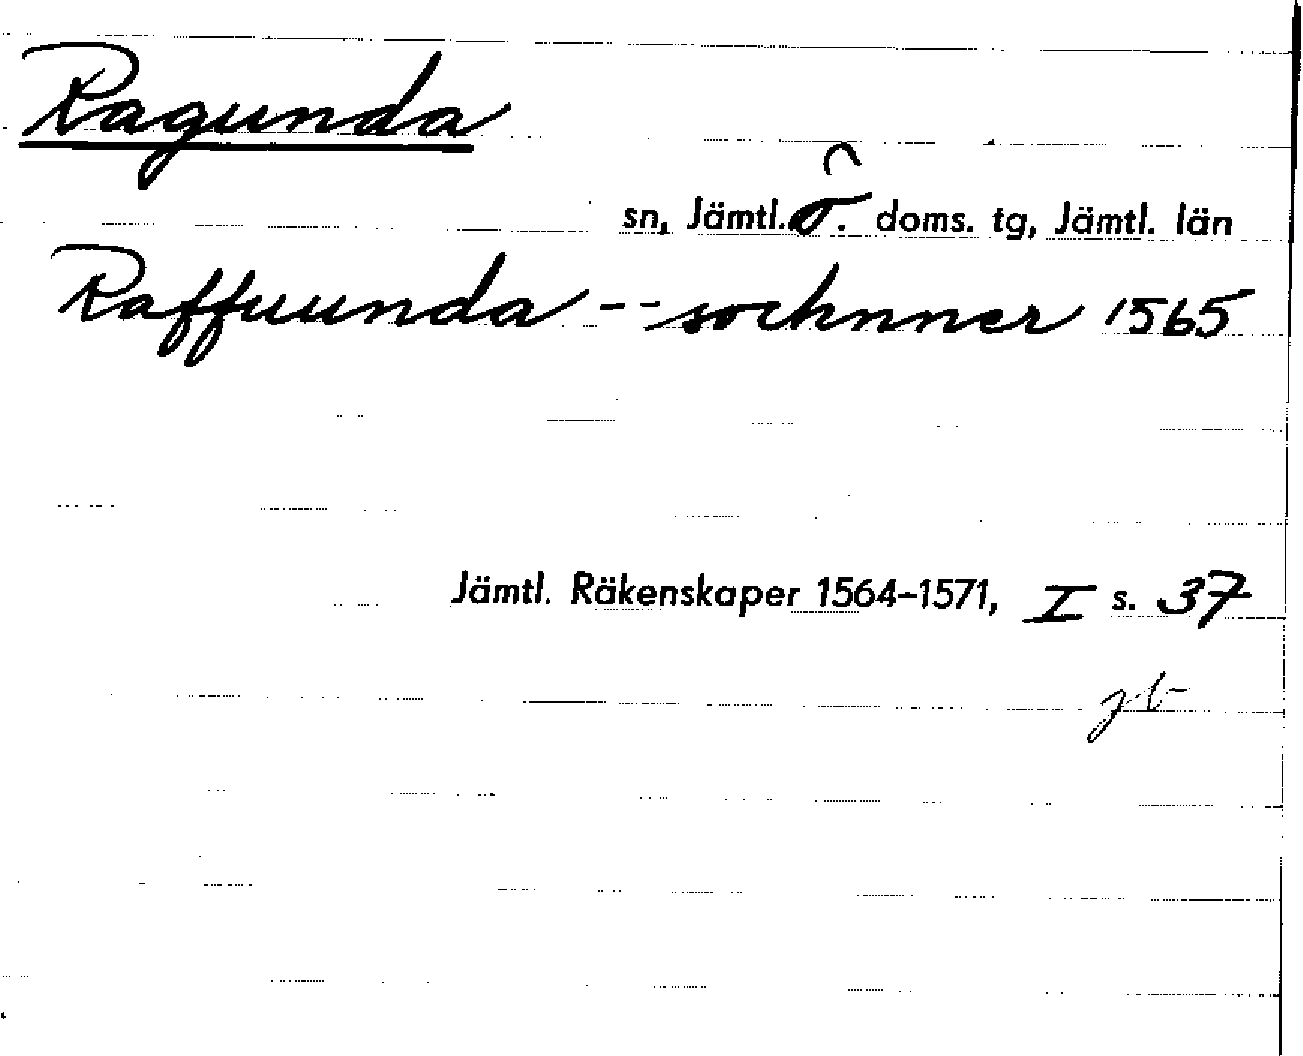 Ragunda
sn, Jämtl. ö. doms. tg, Jämtl. län
Raffuunda -- sochnner 1565
Jämtl. Räkenskaper 1564-1571, I s. 37